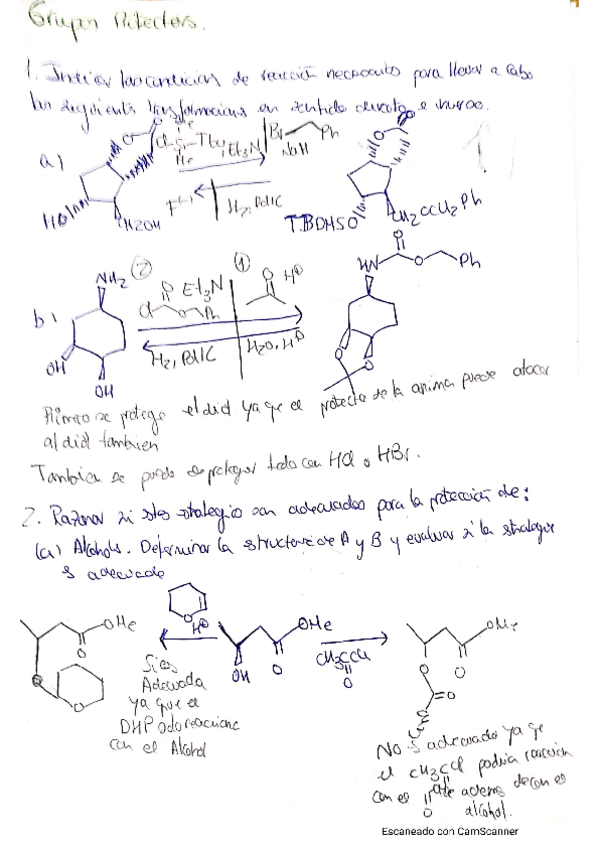 Grupos Protectores.
1. Indicar las condiciones de reacción necesarias para llevar a cabo
las siguientes transformaciones en sentido directo e inverso.
a)
O
O
Cl-Si-Tbu, Et3N
Me
Me
Br Ph
NaH
F(-)
H2, Pd/C
HO
CH2OH
TBDMSO
Ph
b)
NH2
(2)
(1)
O
Cl O Ph
Et3N
O
H⊕
H2, Pd/C
H2O, H⊕
OH
OH
HN
O
O
Ph
O
O
Primero se protege el diol ya que el protector de la amina puede atacar
al diol tambien
Tambien se puede desproteger todo con HCl o HBr.
2. Razonar si estas estrategias son adecuadas para la protección de:
(a) Alcohols. Determinar la estructura de A y B y evaluar si la estrategia
es adecuada
OMe
O
O
O
O
H⊕
OMe
OH
O
CH3CCl
O
OMe
O
O
=O
Si es
Adecuada
ya que el
DHP solo reacciona
con el Alcohol
No es adecuado ya que
el CH3CCl podria reaccionar
O
con el
alcohol.
Escaneado con CamScanner